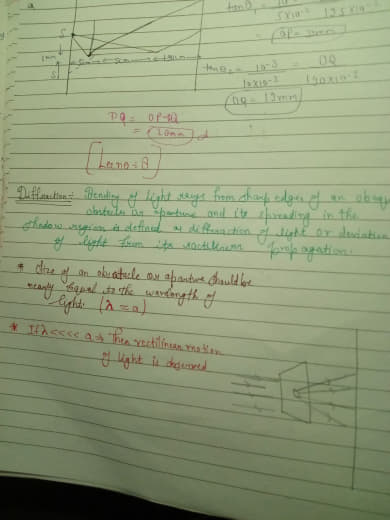 a
tanθ₁ = 10
5x10⁻³ 195x10⁻³
S
OP = 39mm
1mm
S
5cm 5cm 190cm
tanθ₂ = 10⁻³ = OQ
10x10⁻³ 190x10⁻³
OQ = 19mm
PQ = OP-OQ
= 20mm
[Lec no: 8]
Diffraction:- Bending of light rays from sharp edges of an
obstacle or aperture and its spreading in the
shadow region is defined as diffraction of light or deviation
of light from its rectilinear propagation.
* Size of an obstacle or aperture should be
nearly equal to the wavelength of
light. (λ = a)
* If λ<<<< a ⇒ Then rectilinear motion
of light is observed